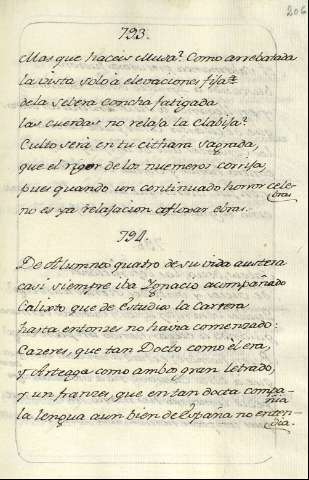 206
793.
Mas que haceis Musa? Como arrebatada
la vista solo à elevaciones fija?
de la setera concha fatigada
las cuerdas no relaja la clabija?
Culto serà en tu cithara sagrada,
que el rigor de los numeros corrija,
pues quando un continuado horror cele-
bras
no es ya relajacion afloxar ebras.
794.
De Alumnos quatro de su vida austera
casi siempre iba Ygnacio acompañado
Calixto que de Estudio la Carrera
hasta entonzes no havia comenzado:
Cazeres, que tan Docto como èl era,
y Arteaga como ambos gran letrado,
y un franzes, que en tan docta compa-
ñia
la lengua aun bien de España no enten-
dia.